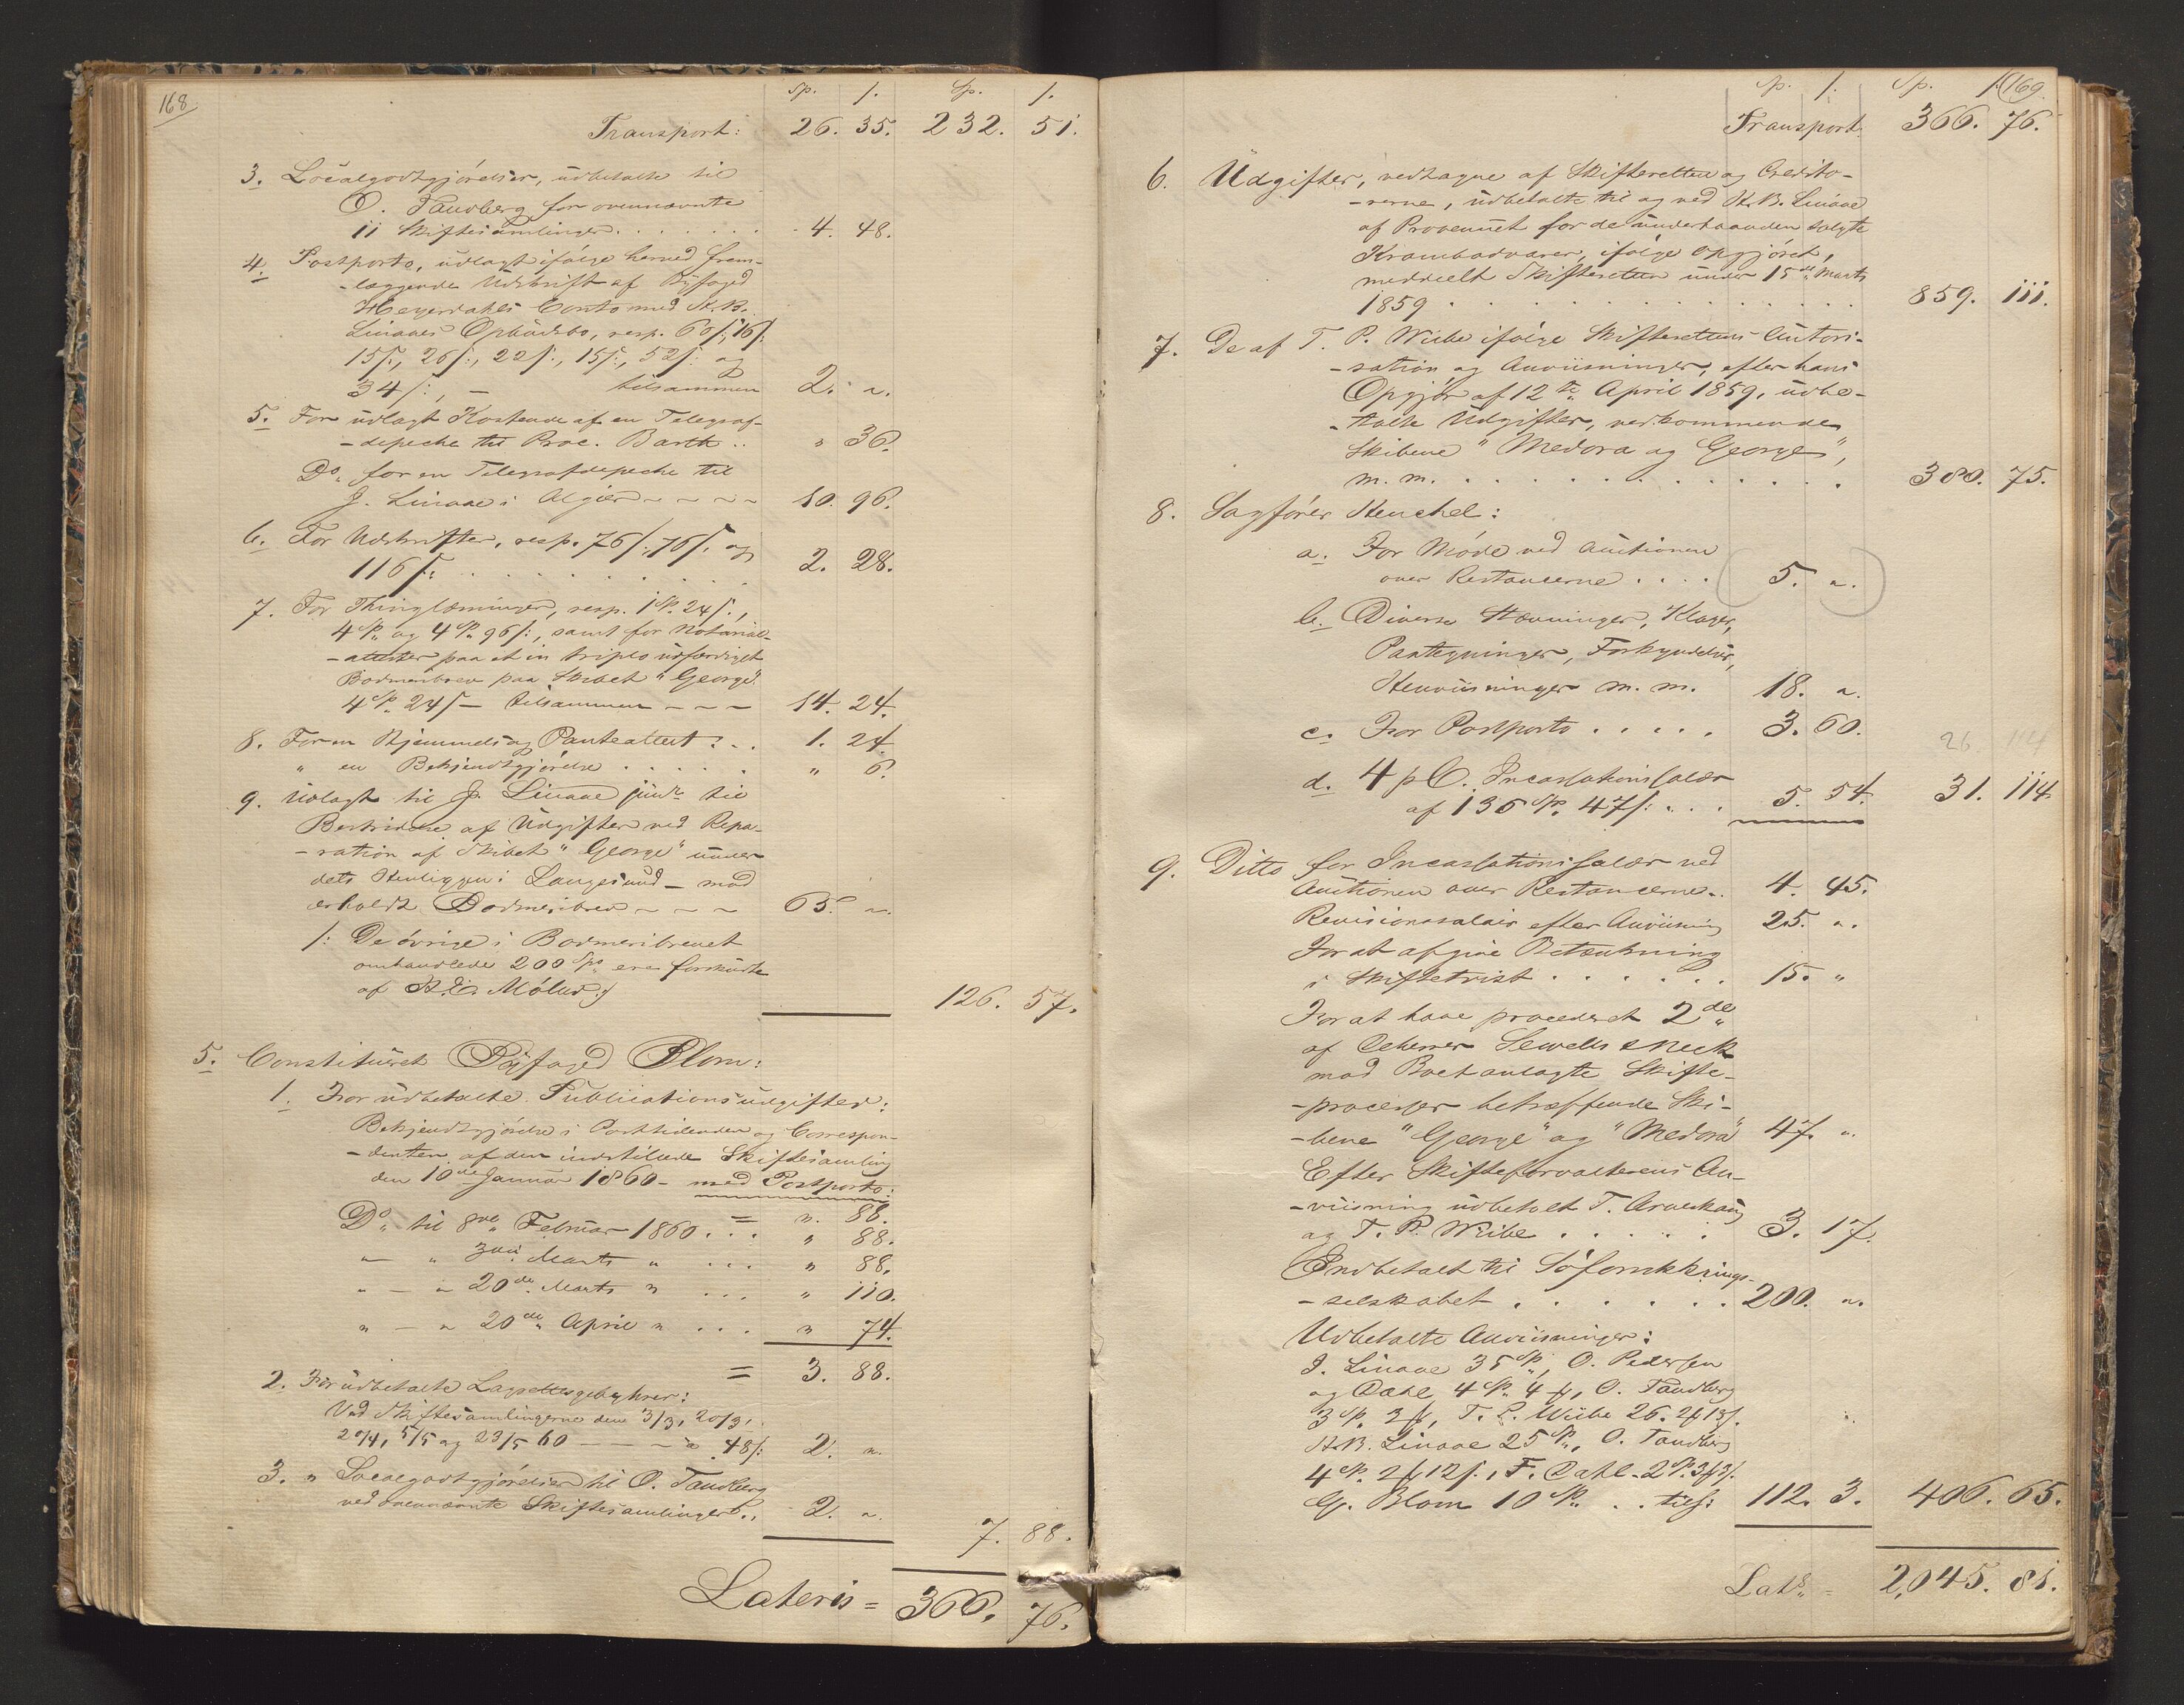 168
Sp. ſ. Sp. ſ.
Transport: 26. 35. 232. 51.
3. Localgodtgjörelser, udbetalte til
O. Tandberg for ovennævnte
11 Skiftesamlinger . . . . . . 4. 48.
4. Postporto, udlagt ifölge herved frem-
-læggende Udskrift af Byfoged
Heyerdahls Conto med H. B.
Linaaes Opbudsbo, resp. 60ſ:, 16ſ:
15ſ:, 26ſ:, 22ſ:, 15ſ:, 52ſ: og
34ſ:, — tilsammen 2. "
5. For udlagt Kostende af en Telegraf-
-depeche til Proc. Barth . . " 36.
Do. for en Telegrafdepeche til
J. Linaae i Algier - - - - 10. 96.
6. For Udskrifter, resp. 76ſ:, 76ſ: og
116ſ: . . . . . . . . . . 2. 28.
7. For Thinglæsninger, resp. 1 Sp. 24ſ:,
4 Sp. og 4 Sp. 96ſ:, samt for Notarial-
-attester paa et in triplo udfærdiget
Bodmeribrev paa Skibet "George"
4 Sp. 24ſ — tilsammen - - - 14. 24.
8. For en Hjemmels og Panteattest . . 1. 24.
" en Bekjendtgjörelse . . . . . " 6.
9. Udlagt til J. Linaae junr. til
Bestridelse af Udgifter ved Repa-
-ration af Skibet "George" under
dets Henliggen i Langesund — mod
erholdt Bodmeribrev - - - 65. "
/: De övrige i Bodmeribrevet
omhandlede 200 Spd. ere forskudte
af Möller :/
126. 57.
5. Constitueret Byfoged Blom:
1. For udbetalte Publicationsudgifter:
Bekjendtgjörelse i Posttidenden og Correspon-
-denten af den indstillede Skiftesamling
den 10de Januar 1860 — med Postporto:
= ". 88.
Do. til 8de Februar 1860 . . . " 88.
— " 3die Marts " . . . " 88.
" — " 20de Marts " . . . " 110.
" — " 20de April " . . . " 74.
= 3. 88.
2. For udbetalte Lagrettesgebyhrer:
Ved Skiftesamlingerne den 3/3, 20/3,
20/4, 5/5 og 23/5 60 — — — a 48ſ: 2. ".
3. " Localgodtgjörelser til O. Tandberg
ved ovennævnte Skiftesamlinger . 2. ".
7. 88.
Lateris = 366. 76.
169.
Sp. ſ. Sp. ſ.
Transport 366. 76.
6. Udgifter, vedtagne af Skifteretten og Credito-
-rerne, udbetalte til og ved H. B. Linaae
af Provenuet for de underhaanden solgte
Krambodvarer, ifölge Opgjöret,
meddeelt Skifteretten under 15de Marts
1859 . . . . . . . . . . . . . . 859. 111.
7. De af T. P. Wiibe ifölge Skifterettens Autori-
-sation og Anviisninger, efter hans
Opgjör af 12te April 1859, udbe-
-talte Udgifter, vedkommende
Skibene "Medora og George",
m. m. . . . . . . . . . . . . . 380. 75.
8. Sagförer Henchel:
a. For Möde ved Auctionen
over Restancerne . . . . (5. ".)
b. Diverse Stævninger, Klager,
Paategninger, Forkyndelser,
Henviisninger m. m. 18. ".
c. For Postporto . . . . . 3. 60.
26. 114
d. 4 p C. Incassationssalær
af 136 Sp. 47ſ: . . . 5. 54. 31. 114.
9. Ditto for Incassationssalær ved
Auctionen over Restancerne . . 4. 45.
Revisionssalair efter Anviisning 25. ".
For at afgive Betænkning
i Skiftetvist . . . . . . . 15. "
For at have procederet 2de
af Neck
mod Boet anlagte Skifte-
-processer betræffende Ski-
-bene "George" og "Medora" 47. ".
Efter Skifteforvalterens An-
-viisning udbetalt T.
og T. P. Wiibe . . . . . 3. 17.
Indbetalt til Söforsikkrings-
-selskabet . . . . . . . 200. ".
Udbetalte Anviisninger:
J. Linaae 35 Sp., O. Pedersen
og Dahl 4 Sp. 4 , O. Tandberg
3 Sp. 3 , T. P. Wiibe 26. 2 13ſ.
H.B. Linaae 25 Sp., O. Tandberg
4 Sp. 2 12ſ., F. Dahl 2 Sp. 3 3ſ.
G. Blom 10 Sp. . . tils: 112. 3. 406. 65.
Lats. = 2,045. 81.